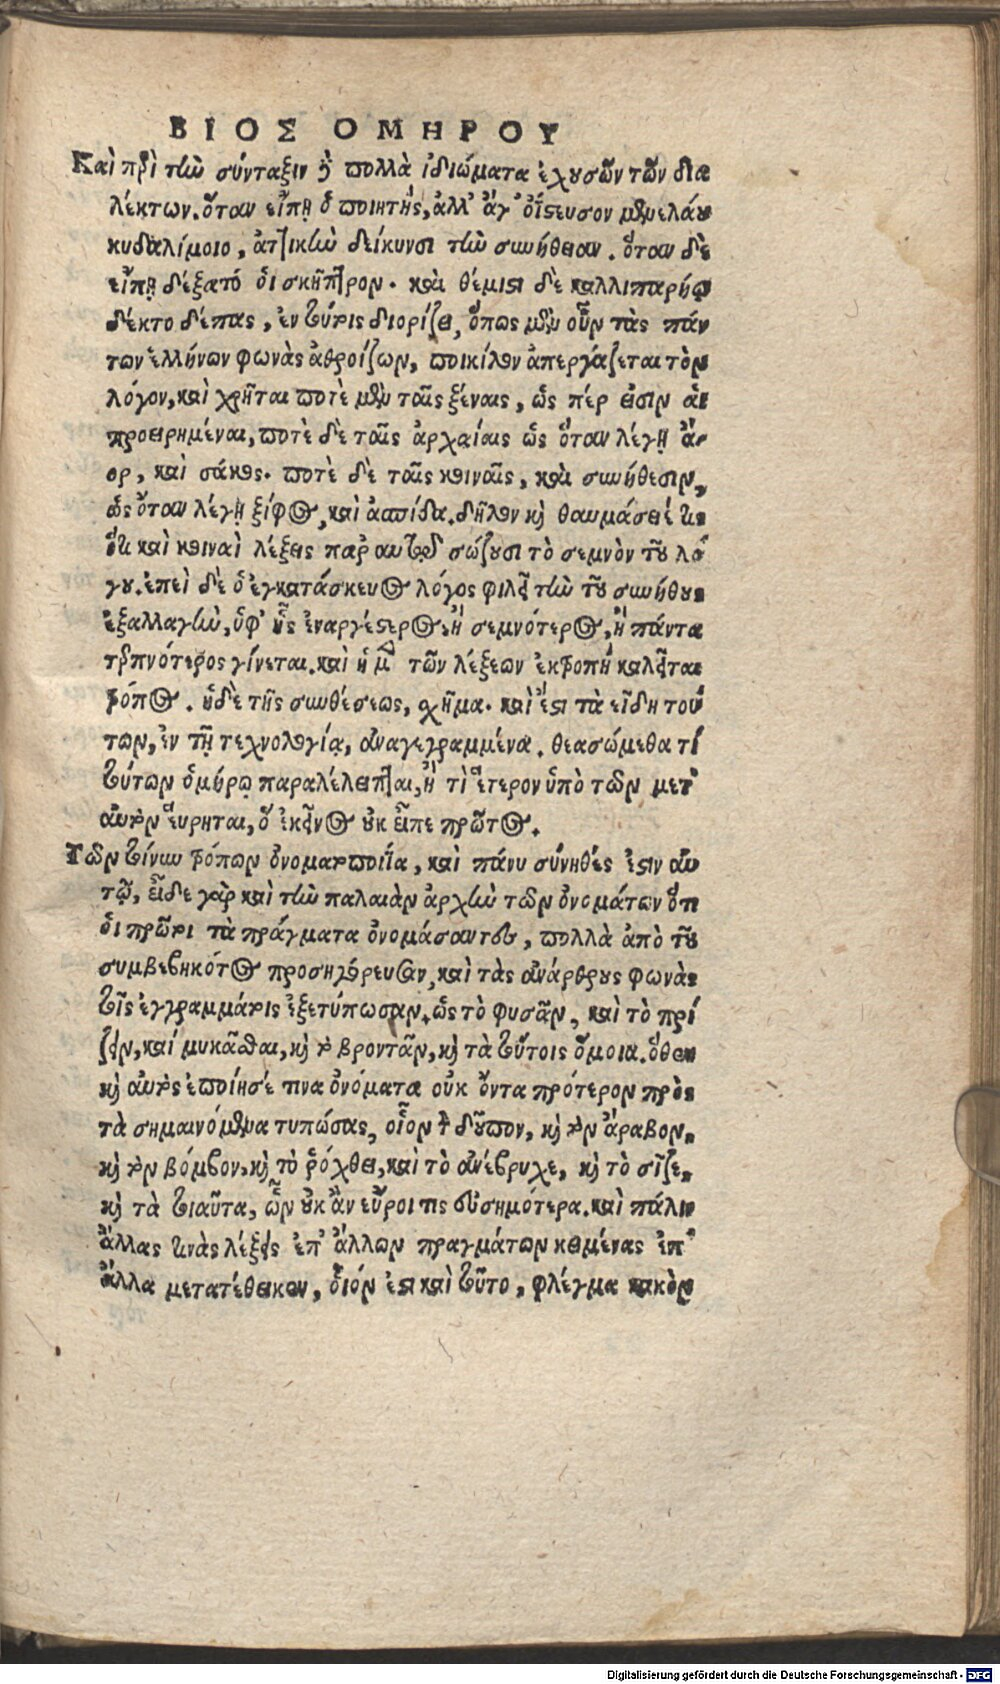 ΒΙΟΣ ΟΜΗΡΟΥ
Καὶ περὶ τὴν σύνταξιν δὲ πολλὰ ἰδιώματα ἐχουσῶν τῶν δια
λέκτων. ὅταν εἴπῃ ὁ ποιητής, ἀλλ' ἄγ' ὀΐστευσον μενελάου
κυδαλίμοιο, ἀττικὴν δείκνυσι τὴν συνήθειαν. ὅταν δὲ
εἴπῃ δέξατό οἱ σκῆπτρον. καὶ θέμιστι δὲ καλλιπαρήῳ
δέκτο δέπας, ἐν τούτοις διορίζει, ὅπως μὲν οὖν τὰς πάν
των ἑλλήνων φωνὰς ἀθροίζων, ποικίλον ἀπεργάζεται τὸν
λόγον, καὶ χρῆται ποτὲ μὲν ταῖς ξέναις, ὥς πέρ εἰσιν αἱ
προειρημέναι, ποτὲ δὲ ταῖς ἀρχαίαις ὡς ὅταν λέγῃ ἄ-
ορ, καὶ σάκος. ποτὲ δὲ ταῖς κοιναῖς, καὶ συνήθεσιν,
ὡς ὅταν λέγῃ ξίφος, καὶ ἀσπίδα. δῆλον καὶ θαυμάσειέ τις
ὅτι καὶ κοιναὶ λέξεις παρ αὐτῷ σώζουσι τὸ σεμνὸν τοῦ λό
γου. ἐπεὶ δὲ ὁ ἐγκατάσκευος λόγος φιλεῖ τὴν τοῦ συνήθους
ἐξαλλαγὴν, ὑφ' ἧς ἐναργέστερος, ἢ σεμνότερος, ἢ πάντα
τερπνότερος γίνεται. καὶ ἡ μὲν τῶν λέξεων ἐκτροπὴ καλεῖται
τρόπος. ἡ δὲ τῆς συνθέσεως, σχῆμα. καὶ ἔστι τὰ εἴδη τού
των, ἐν τῇ τεχνολογίᾳ, ἀναγεγραμμένα. θεασώμεθα τί
τούτων ὁμήρῳ παραλέλειπται, ἢ τί ἕτερον ὑπὸ τῶν μετ'
αὐτὸν εὕρηται, ὃ ἐκεῖνος οὐκ εἶπε πρῶτος.
Τῶν τοίνυν τρόπων ὀνοματοποιΐα, καὶ πάνυ σύνηθές ἐστιν αὐ
τῷ, εἶδε γὰρ καὶ τὴν παλαιὰν ἀρχὴν τῶν ὀνομάτων ὅτι
οἱ πρῶτοι τὰ πράγματα ὀνομάσαντες, πολλὰ ἀπὸ τοῦ
συμβεβηκότος προσηγόρευσαν, καὶ τὰς ἀνάρθρους φωνὰς
τοῖς ἐγγραμμάτοις ἐξετύπωσαν. ὡς τὸ φυσᾶν, καὶ τὸ πρί
ζειν, καί μυκᾶσθαι, καὶ τὸ βροντᾶν, καὶ τὰ τούτοις ὅμοια. ὅθεν
καὶ αὐτὸς ἐποίησέ τινα ὀνόματα οὐκ ὄντα πρότερον πρὸς
τὰ σημαινόμενα τυπώσας, οἷον τὸν δοῦπον, καὶ τὸν ἄραβον,
καὶ τὸν βόμβον, καὶ τὸ ῥόχθει, καὶ τὸ ἀνέβρυχε, καὶ τὸ σῖζε,
καὶ τὰ τοιαῦτα, ὧν οὐκ ἂν εὕροι τις εὐσημότερα. καὶ πάλιν
ἄλλας τινὰς λέξεις ἐπ' ἄλλων πραγμάτων κειμένας ἐπ'
ἄλλα μετατέθεικεν, οἷόν ἐστι καὶ τοῦτο, φλέγμα κακὸν
Digitalisierung gefördert durch die Deutsche Forschungsgemeinschaft - DFG